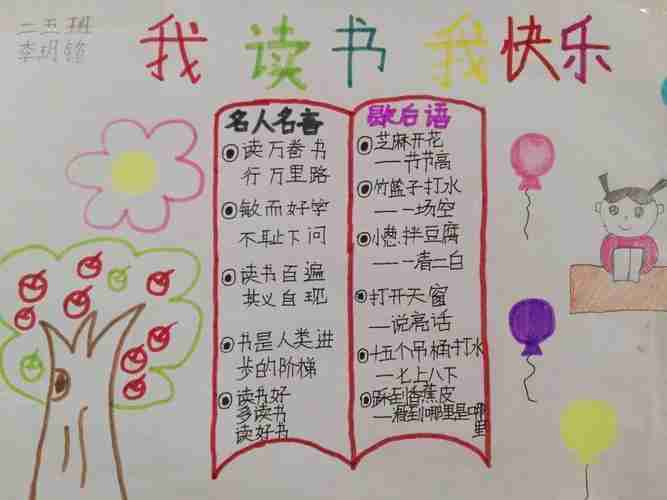 二五班
我读书我快乐
名人名言
读万卷书
行万里路
敏而好学
不耻下问
读书百遍
其义自现
书是人类进
步的阶梯
读书好
多读书
读好书
歇后语
芝麻开花
——节节高
竹篮子打水
——一场空
小葱拌豆腐
——一清二白
打开天窗
—说亮话
十五个吊桶打水
—七上八下
踩到香蕉皮
—溜到哪里是哪
里